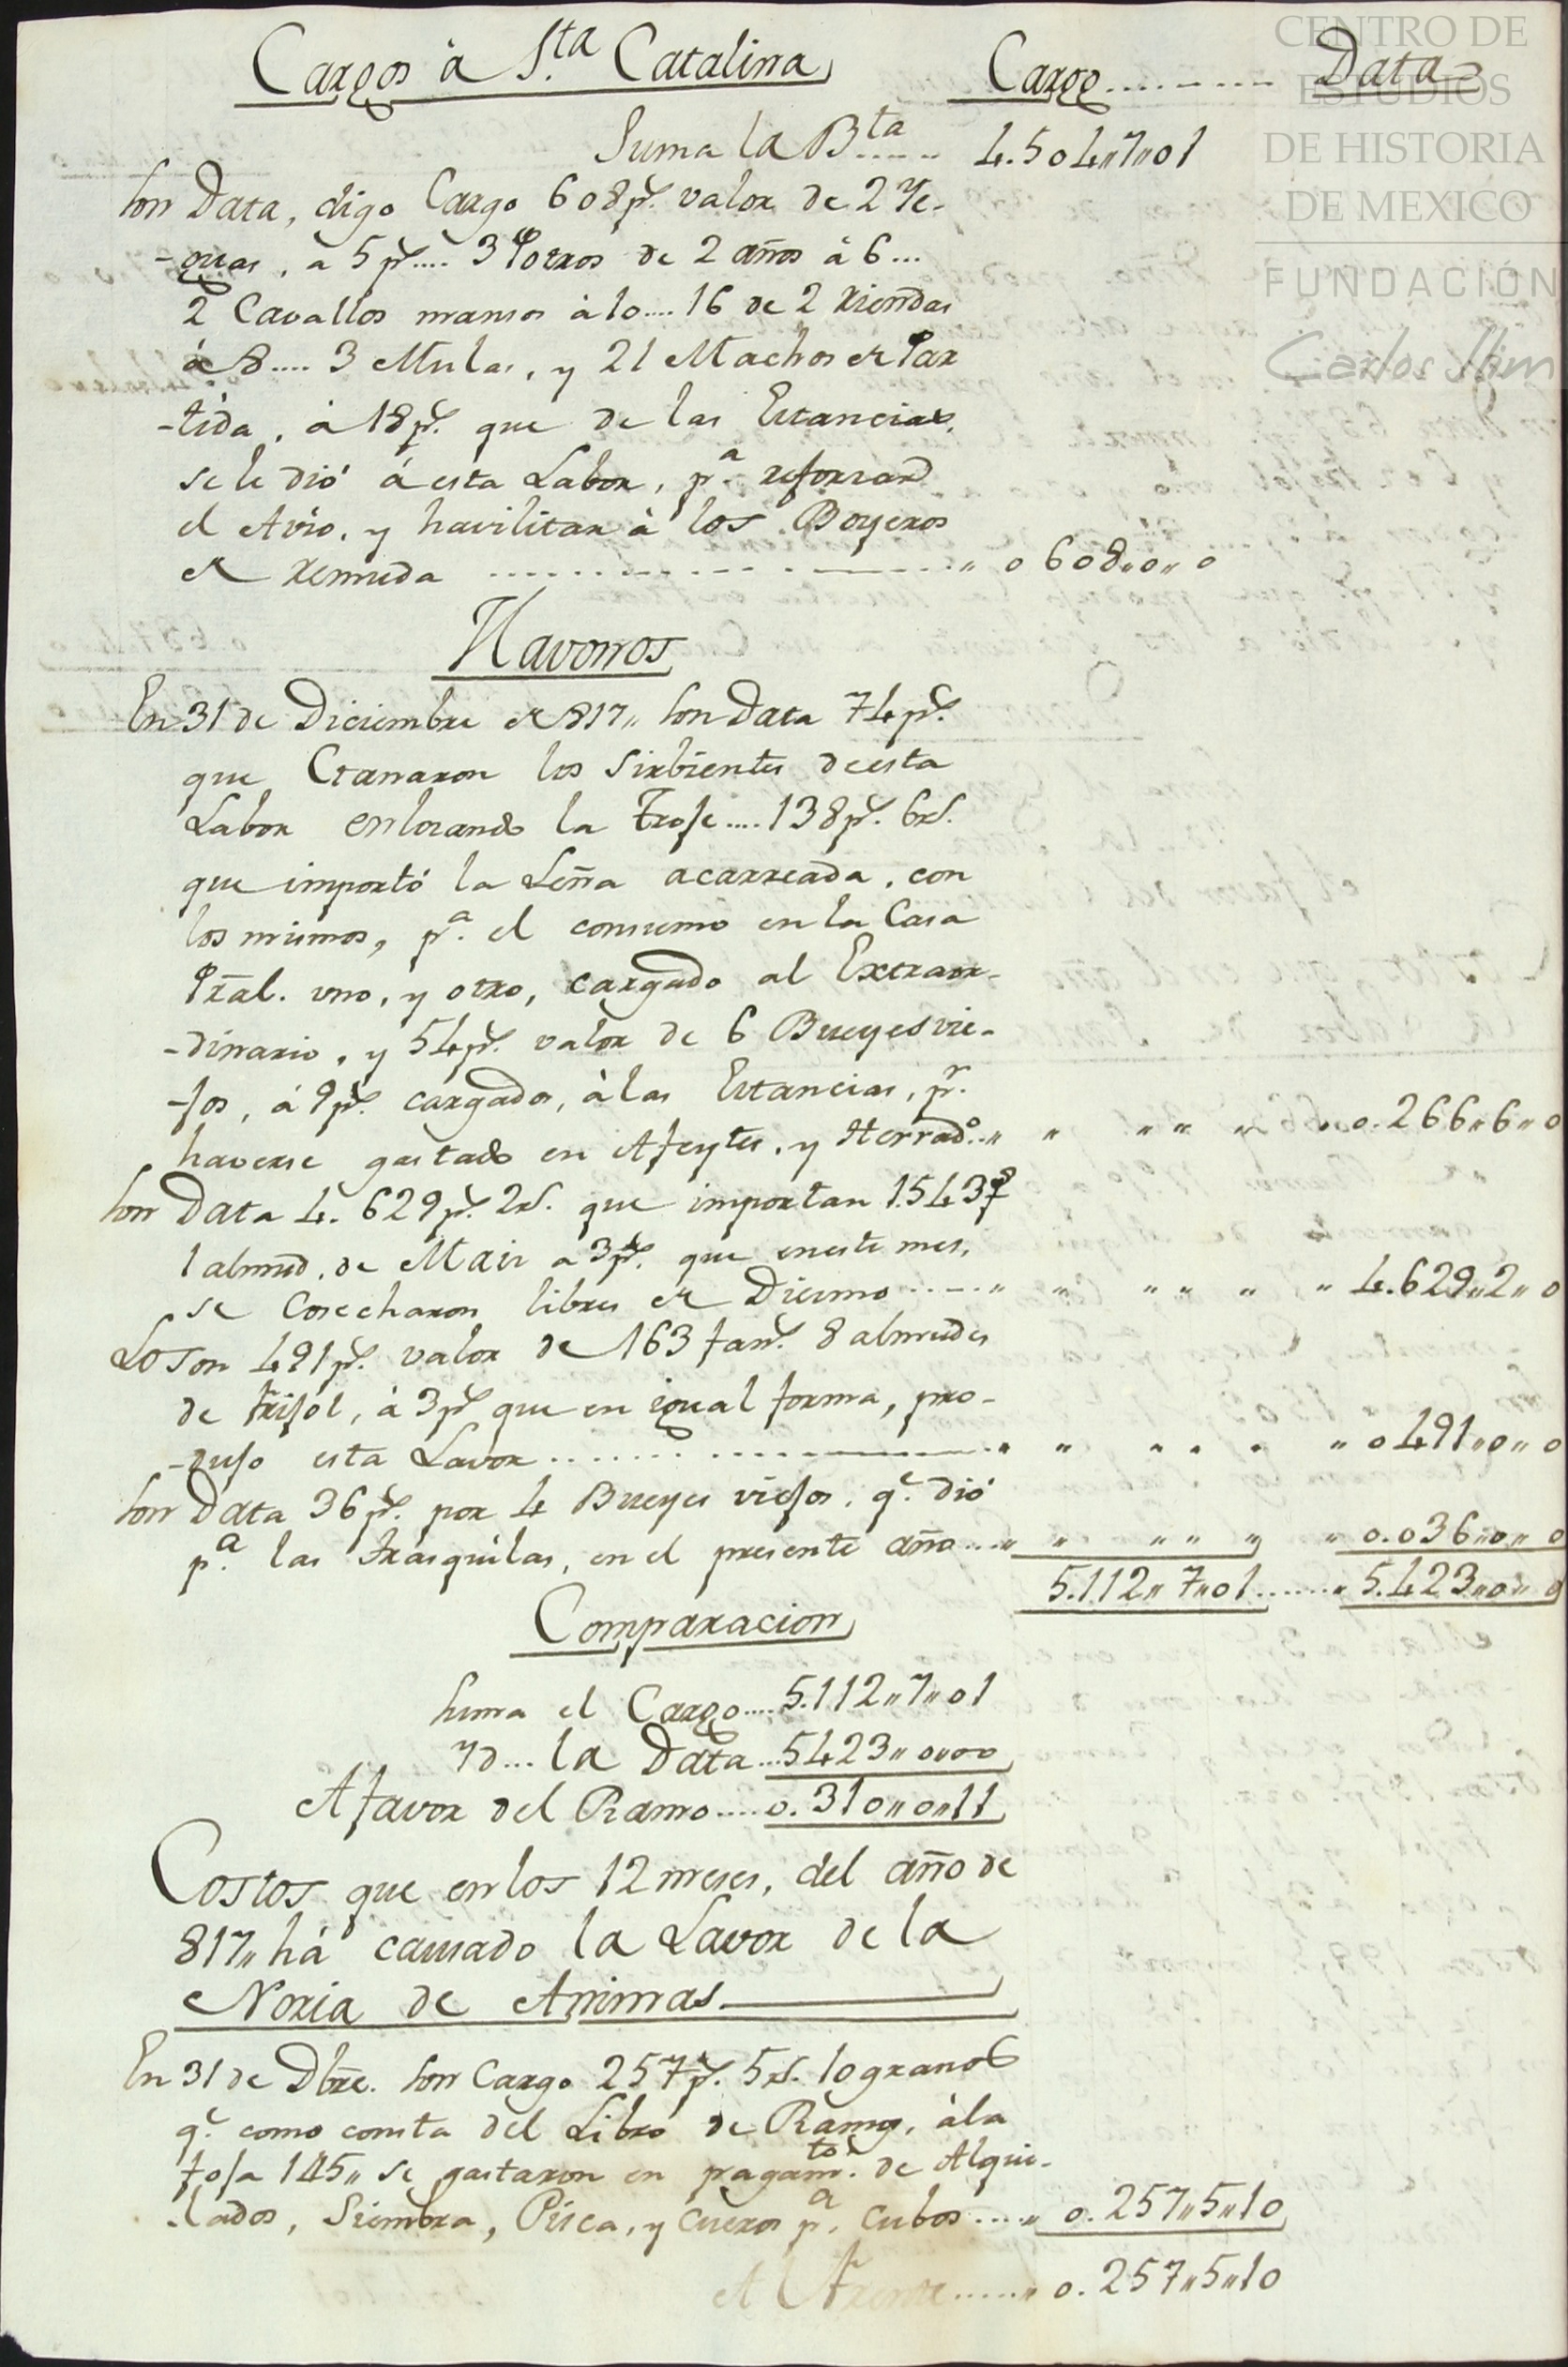 Cargos à S.ta Catalina Cargo.......... Data
Suma la B.ta ..... 4.504,,7,,01
Son Data, digo Cargo 608 p.s valor de 2 Ye-
-guas, a 5 p.s.... 3 Potros de 2 años à 6...
2 Cavallos mansos à 10.... 16 de 2 riendas
à 8.... 3 Mulas, y 21 Machos de Par
-tida, à 18 p.s que de las Estancias,
se le dió á esta Labor, p.a reforsar
el Avio, y havilitar à los Boyeros
de remuda ................ ,, 0 608,,0,,0
Havonos
En 31 de Diciembre de 817,, son Data 74 p.s
que Ganaron los Sirbientes de esta
Labor enlosando la Troje.... 138 p.s 6 r.s
que importó la Leña acarreada, con
los mismos, p.a el consumo en la Casa
Pral. uno, y otro, cargado al Extraor-
-dinario, y 54 p.s valor de 6 Bueyes vie-
-jos, á 9 p.s cargados, à las Estancias, p.r
haverse gastado en Afeytes, y Herrad.o.. ,, ,, ,, ,, ,, ,, 0.266,,6,,0
Son Data 4.629 p.s 2 r.s que importan 1543 f
1 almud, de Mais a 3 p.s que en este mes,
se Cosecharon libres de Diesmo ....... ,, ,, ,, ,, ,, ,, 4.629,,2,,0
Lo son 491 p.s valor de 163 fan.s 8 almudes
de Frijol, à 3 p.s que en igual forma, pro-
-dujo esta Lavor ................ ,, ,, ,, ,, ,, ,, 0 491,,0,,0
Son Data 36 p.s por 4 Bueyes viejos, q.e dió
p.a las trasquilas, en el presente año.... ,, ,, ,, ,, ,, ,, 0.036,,0,,0
5.112,,7,,01....... ,, 5.423,,0,,0
Comparacion
Suma el Cargo.... 5.112,,7,,01
Yd... la Data... 5423,,0,,00
A favor del Ramo.... 0.310,,0,,11
Costos que en los 12 meses, del año de
817,, há causado la Lavor de la
Noria de Animas
En 31 de Dbre. son Cargo 257 p.s 5 r.s 10 granos
q.e como consta del Libro de Ramos, à la
foja 145,, se gastaron en pagam.to de Alqui-
-lados, Siembra, Pisca, y cueros p.a cubos.... ,, 0.257,,5,,10
Al Frente...... ,, 0.257,,5,,10
CENTRO DE
ESTUDIOS
DE HISTORIA
DE MEXICO
FUNDACIÓN
Carlos Slim